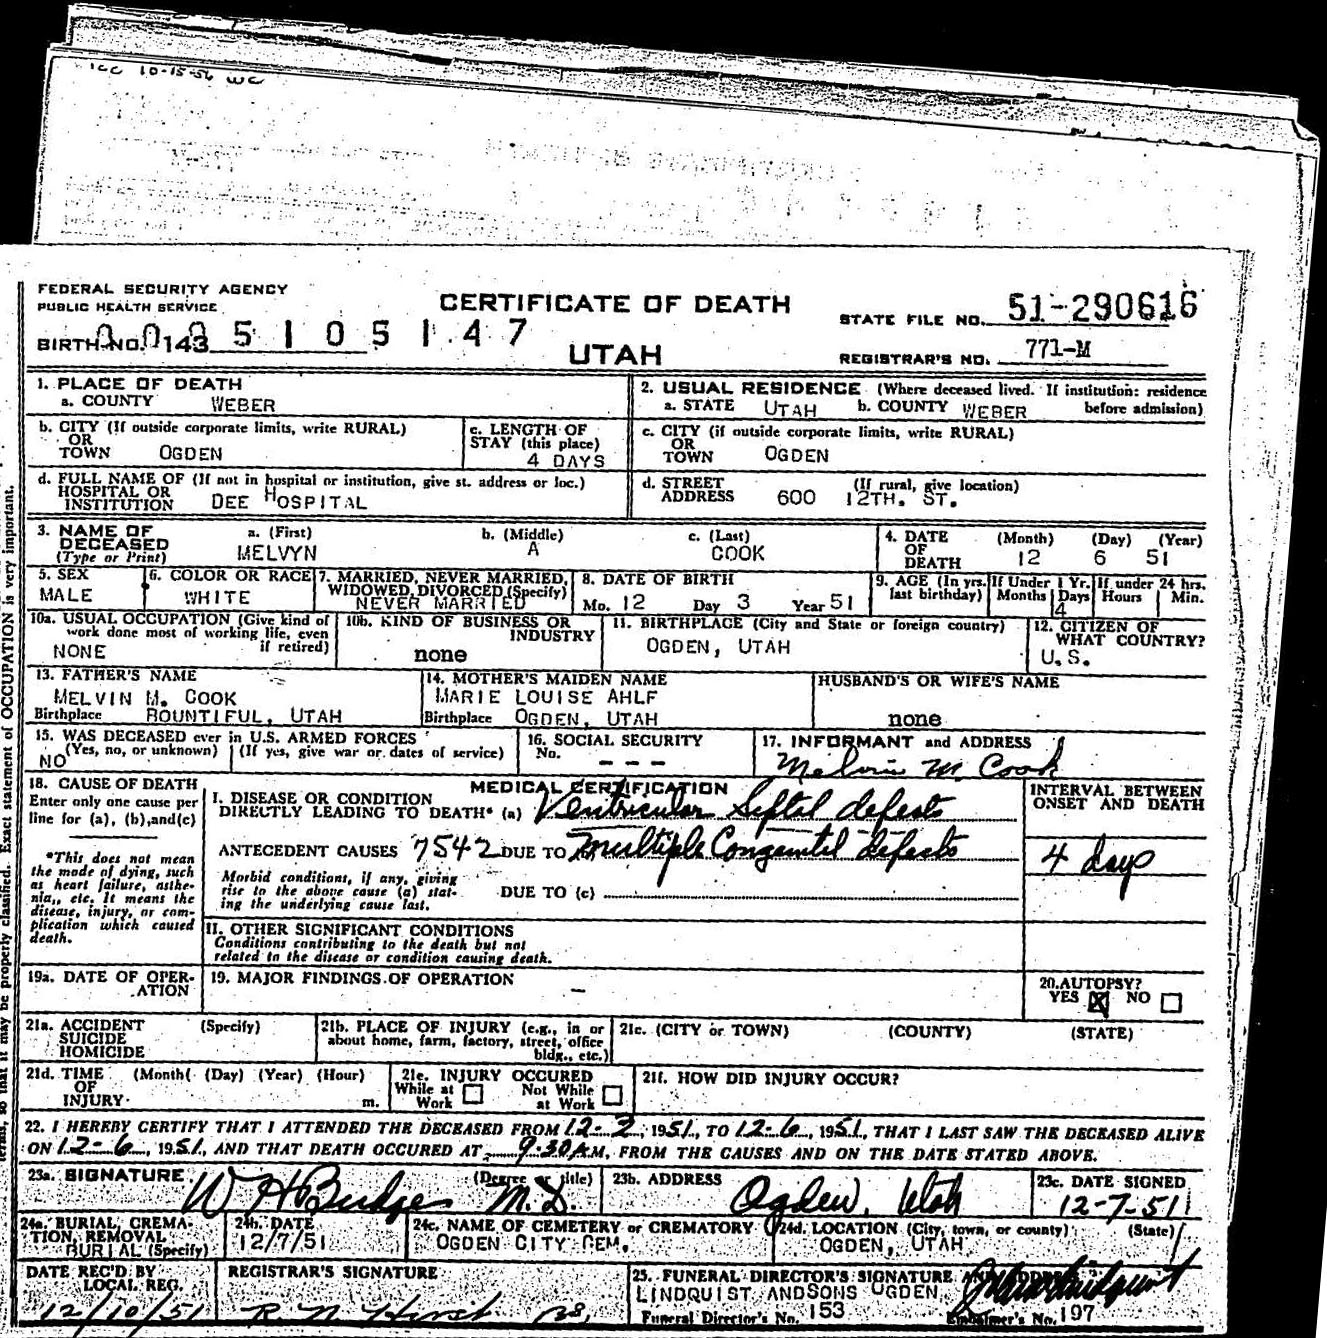 ICC 10-15-56 WC
FEDERAL SECURITY AGENCY
PUBLIC HEALTH SERVICE
CERTIFICATE OF DEATH
STATE FILE NO. 51-290616
BIRTH NO. 143 5105147
UTAH
REGISTRAR'S NO. 771-M
1. PLACE OF DEATH
a. COUNTY WEBER
2. USUAL RESIDENCE (Where deceased lived. If institution: residence before admission)
a. STATE UTAH b. COUNTY WEBER
b. CITY (If outside corporate limits, write RURAL)
OR
TOWN OGDEN
c. LENGTH OF
STAY (this place)
4 DAYS
c. CITY (if outside corporate limits, write RURAL)
OR
TOWN OGDEN
d. FULL NAME OF (If not in hospital or institution, give st. address or loc.)
HOSPITAL OR
INSTITUTION DEE HOSPITAL
d. STREET (If rural, give location)
ADDRESS 600 12TH. ST.
3. NAME OF
DECEASED
(Type or Print)
a. (First)
MELVYN
b. (Middle)
A
c. (Last)
COOK
4. DATE
OF
DEATH
(Month) (Day) (Year)
12 6 51
5. SEX
MALE
6. COLOR OR RACE
WHITE
7. MARRIED, NEVER MARRIED,
WIDOWED, DIVORCED (Specify)
NEVER MARRIED
8. DATE OF BIRTH
Mo. 12 Day 3 Year 51
9. AGE (In yrs. last birthday)
If Under 1 Yr.
Months Days
4
If under 24 hrs.
Hours Min.
10a. USUAL OCCUPATION (Give kind of
work done most of working life, even
if retired)
NONE
10b. KIND OF BUSINESS OR
INDUSTRY
none
11. BIRTHPLACE (City and State or foreign country)
OGDEN, UTAH
12. CITIZEN OF
WHAT COUNTRY?
U.S.
13. FATHER'S NAME
MELVIN M. COOK
Birthplace BOUNTIFUL, UTAH
14. MOTHER'S MAIDEN NAME
MARIE LOUISE AHLF
Birthplace OGDEN, UTAH
HUSBAND'S OR WIFE'S NAME
none
15. WAS DECEASED ever in U.S. ARMED FORCES
(Yes, no, or unknown) (If yes, give war or dates of service)
NO
16. SOCIAL SECURITY
No. - - -
17. INFORMANT and ADDRESS
Melvin M. Cook
18. CAUSE OF DEATH
Enter only one cause per
line for (a), (b), and (c)
*This does not mean
the mode of dying, such
as heart failure, asthe-
nia,, etc. It means the
disease, injury, or com-
plication which caused
death.
MEDICAL CERTIFICATION
I. DISEASE OR CONDITION
DIRECTLY LEADING TO DEATH* (a) Ventricular Septil defects
ANTECEDENT CAUSES 7542 DUE TO multiple Congenitil defects
Morbid conditions, if any, giving
rise to the above cause (a) stat-
ing the underlying cause last.
DUE TO (c)
INTERVAL BETWEEN
ONSET AND DEATH
4 days
II. OTHER SIGNIFICANT CONDITIONS
Conditions contributing to the death but not
related to the disease or condition causing death.
19a. DATE OF OPER-
ATION
19. MAJOR FINDINGS OF OPERATION
-
20. AUTOPSY?
YES X NO
21a. ACCIDENT (Specify)
SUICIDE
HOMICIDE
21b. PLACE OF INJURY (e.g., in or
about home, farm, factory, street, office
bldg., etc.)
21c. (CITY or TOWN) (COUNTY) (STATE)
21d. TIME (Month( (Day) (Year) (Hour)
OF
INJURY m.
21e. INJURY OCCURED
While at Work Not While at Work
21f. HOW DID INJURY OCCUR?
22. I HEREBY CERTIFY THAT I ATTENDED THE DECEASED FROM 12-3, 1951, TO 12-6, 1951, THAT I LAST SAW THE DECEASED ALIVE
ON 12-6, 1951, AND THAT DEATH OCCURED AT 9:30 A M, FROM THE CAUSES AND ON THE DATE STATED ABOVE.
23a. SIGNATURE (Degree or title)
W H Budge M.D.
23b. ADDRESS
Ogden, Utah
23c. DATE SIGNED
12-7-51
24a. BURIAL, CREMA-
TION, REMOVAL
BURIAL (Specify)
24b. DATE
12/7/51
24c. NAME OF CEMETERY or CREMATORY
OGDEN CITY CEM.
24d. LOCATION (City, town, or county) (State)
OGDEN, UTAH
DATE REC'D BY
LOCAL REG.
12/10/51
REGISTRAR'S SIGNATURE
25. FUNERAL DIRECTOR'S SIGNATURE
LINDQUIST ANDSONS OGDEN,
Funeral Director's No. 153
Embalmer's No. 197
terms, so that it may be properly classified. Exact statement of OCCUPATION is very important.